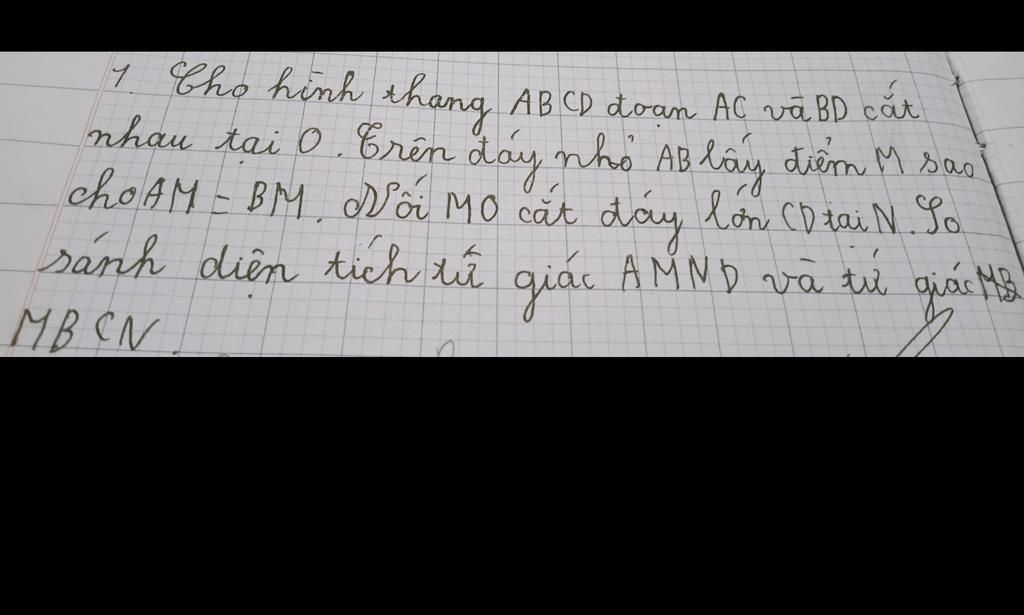 1. Cho hình thang ABCD đoạn AC và BD cắt
nhau tại O. Trên đáy nhỏ AB lấy điểm M sao
cho AM = BM. Nối MO cắt đáy lớn CD tại N. So
sánh diện tích tứ giác AMND và tứ giác
MBCN.